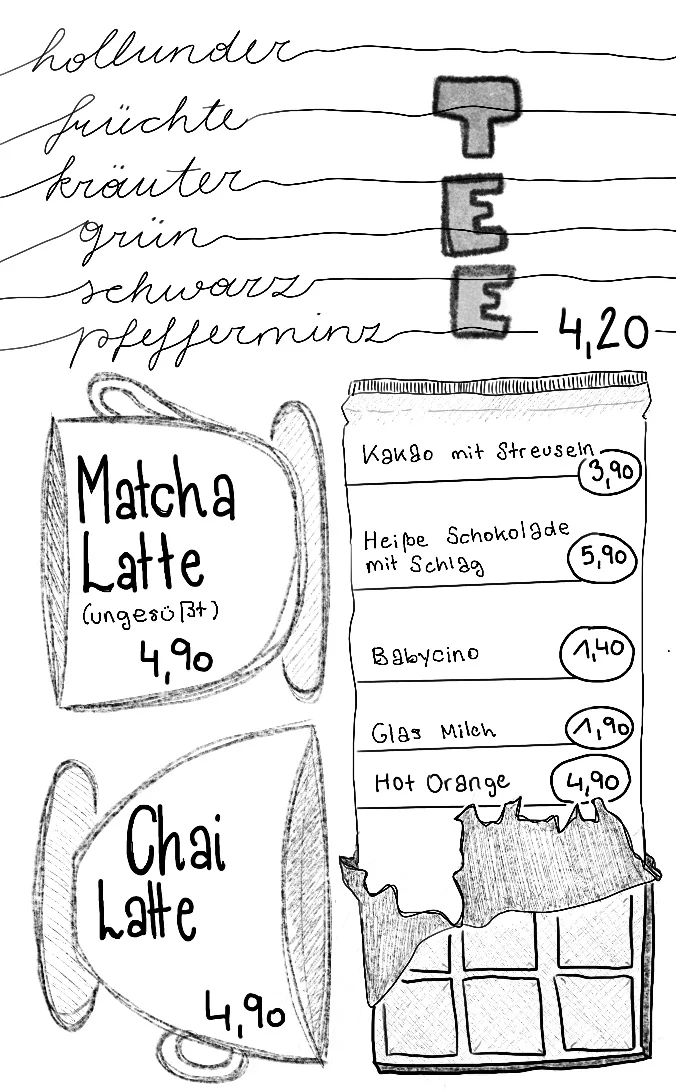 hollunder
früchte
kräuter
grün
schwarz
pfefferminz
TEE
4,20
Matcha
Latte
(ungesüßt)
4,90
Chai
Latte
4,90
Kakao mit Streuseln
3,90
Heiße Schokolade
mit Schlag
5,90
Babycino
1,40
Glas Milch
1,90
Hot Orange
4,90